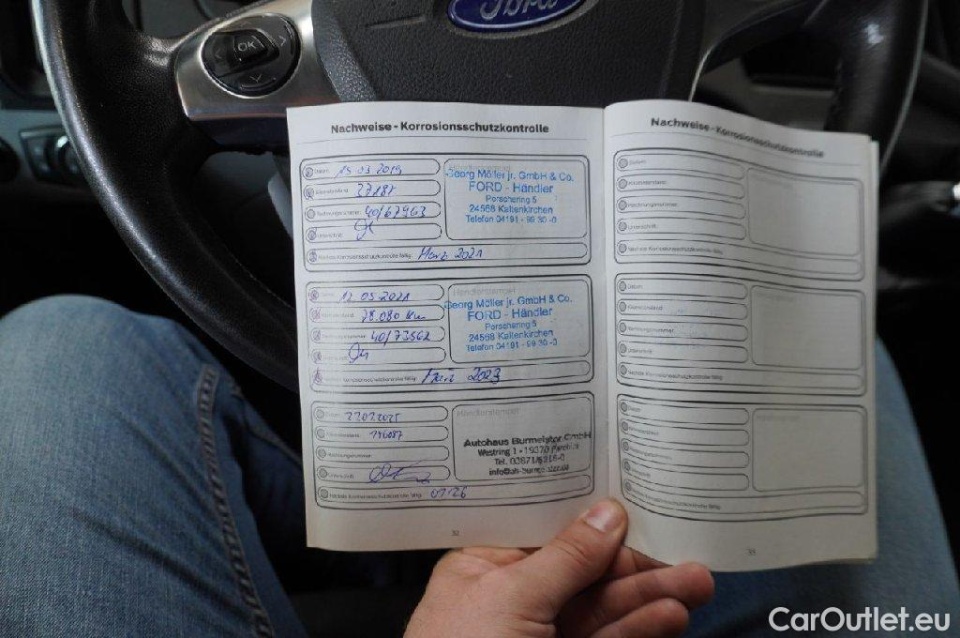 Ford
OK
Nachweise - Korrosionsschutzkontrolle
Datum: 15.03.2019
27181
40/67963
Nächste Korrosionsschutzkontrolle fällig: März 2021
Georg Möller jr. GmbH & Co.
FORD - Händler
Porschering 5
24568 Kaltenkirchen
Telefon 04191 - 99 30 -0
12.05.2021
78.080 km
40/73562
Nächste Korrosionsschutzkontrolle fällig: März 2023
Händlerstempel
Georg Möller jr. GmbH & Co.
FORD - Händler
Porschering 5
24568 Kaltenkirchen
Telefon 04191 - 99 30 -0
146087
Rechnungsnummer:
Unterschrift:
Nächste Korrosionsschutzkontrolle fällig: 07/26
Händlerstempel
Autohaus Burmeister GmbH
Westring 1 • 19370 Parchim
Tel.
32
Nachweise - Korrosionsschutzkontrolle
Datum:
Kilometerstand:
Rechnungsnummer:
Unterschrift:
Nächste Korrosionsschutzkontrolle fällig:
Datum:
Kilometerstand:
Rechnungsnummer:
Unterschrift:
Nächste Korrosionsschutzkontrolle fällig:
Datum:
Kilometerstand:
Rechnungsnummer:
Unterschrift:
Nächste Korrosionsschutzkontrolle fällig:
33
CarOutlet.eu